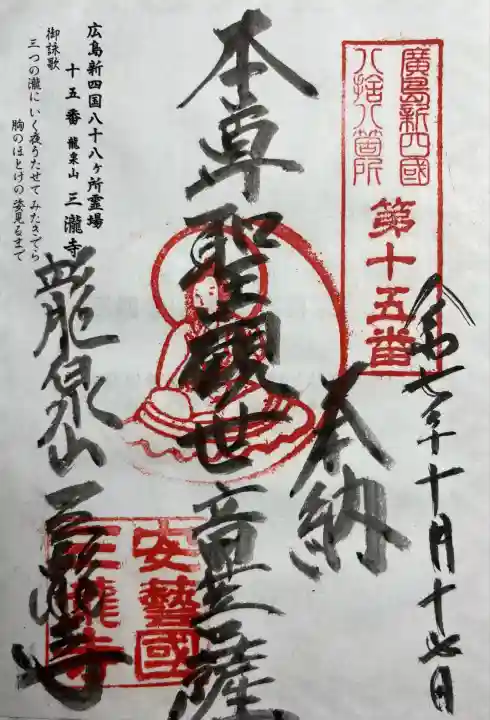 廣島新四國
八拾八箇所
第十五番
令和七年十月十七日
奉納
本尊聖觀世音菩薩
龍泉山三瀧寺
安藝國
三瀧寺
広島新四国八十八ヶ所霊場
十五番 龍泉山 三瀧寺
御詠歌
三つの瀧に いく夜うたせて みたきでら
胸のほとけの 姿見るまで